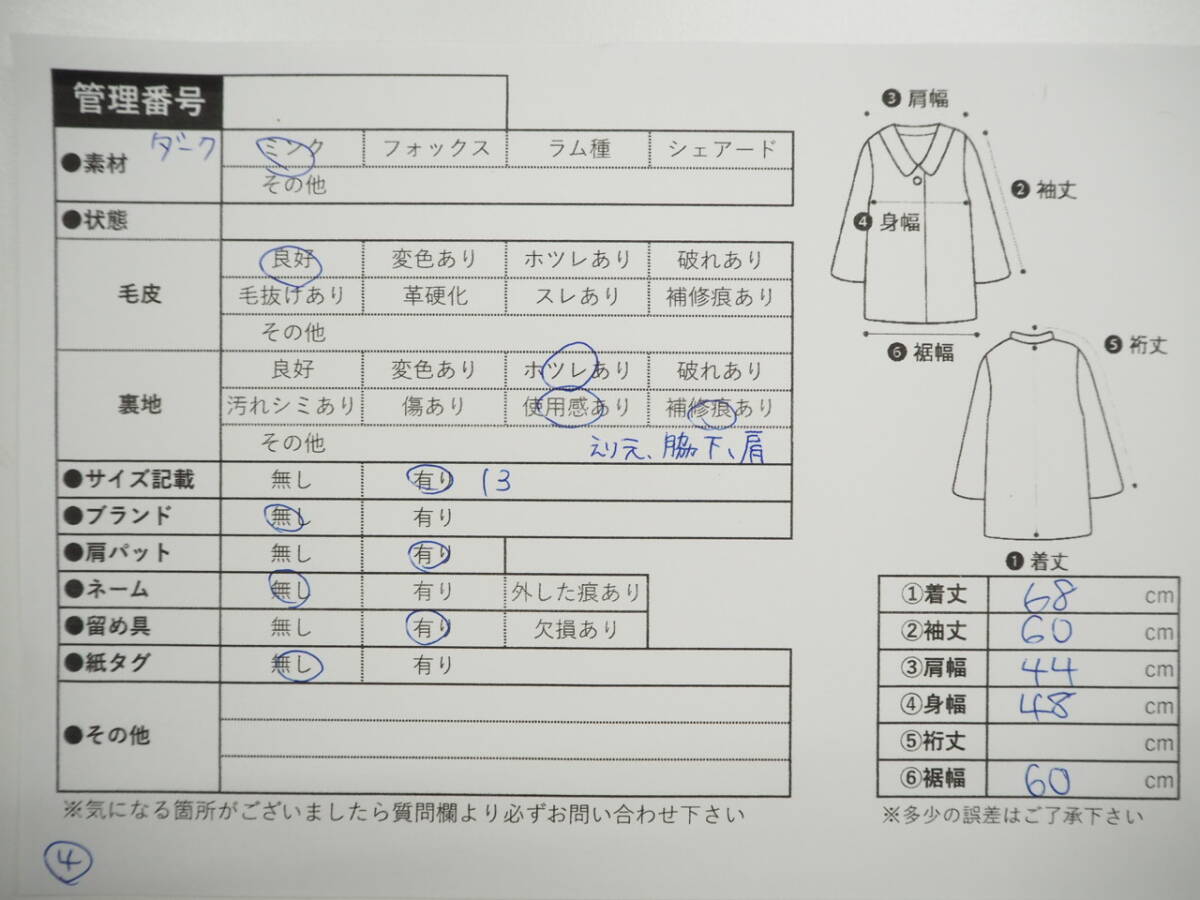 管理番号
●素材 ダーク ミンク フォックス ラム種 シェアード
その他
●状態
毛皮 良好 変色あり ホツレあり 破れあり
毛抜けあり 革硬化 スレあり 補修痕あり
その他
裏地 良好 変色あり ホツレあり 破れあり
汚れシミあり 傷あり 使用感あり 補修痕あり
その他 えり元、脇下、肩
●サイズ記載 無し 有り 13
●ブランド 無し 有り
●肩パット 無し 有り
●ネーム 無し 有り 外した痕あり
●留め具 無し 有り 欠損あり
●紙タグ 無し 有り
●その他
※気になる箇所がございましたら質問欄より必ずお問い合わせ下さい
④
❸肩幅
❷袖丈
❹身幅
❻裾幅
❺裄丈
❶着丈
①着丈 68 cm
②袖丈 60 cm
③肩幅 44 cm
④身幅 48 cm
⑤裄丈 cm
⑥裾幅 60 cm
※多少の誤差はご了承下さい